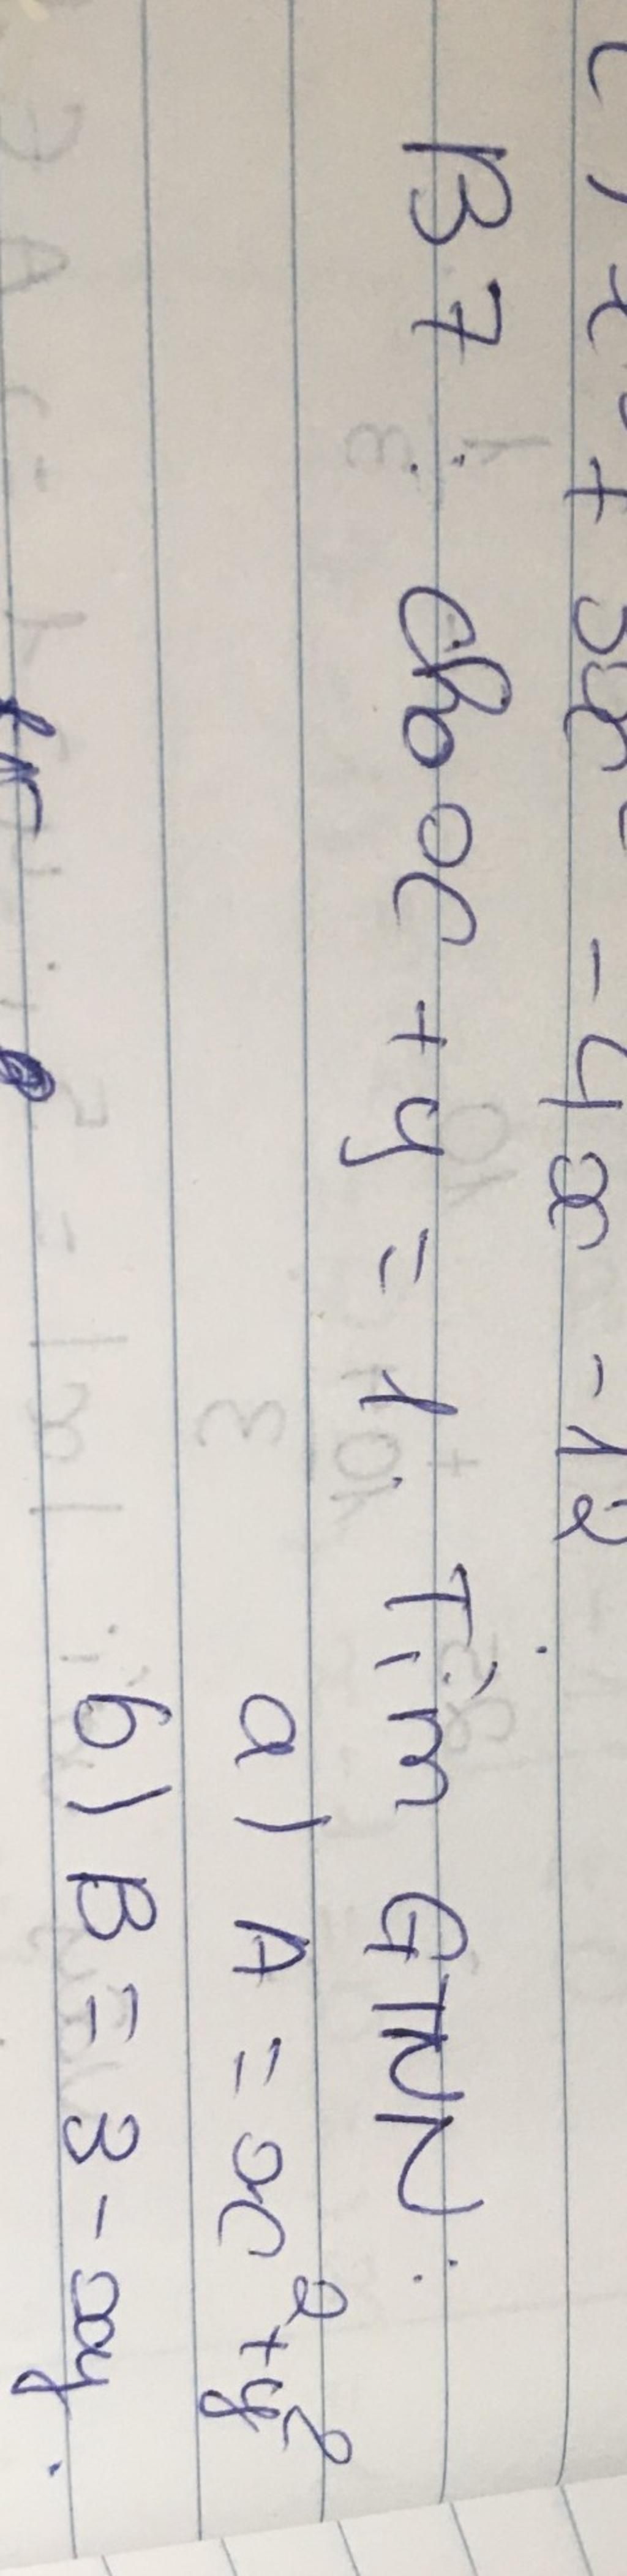 c) x³ + 3x² - 4x - 12
B7 : Cho x + y = 1. Tìm GTNN :
a) A = x² + y²
b) B = 3 - xy.